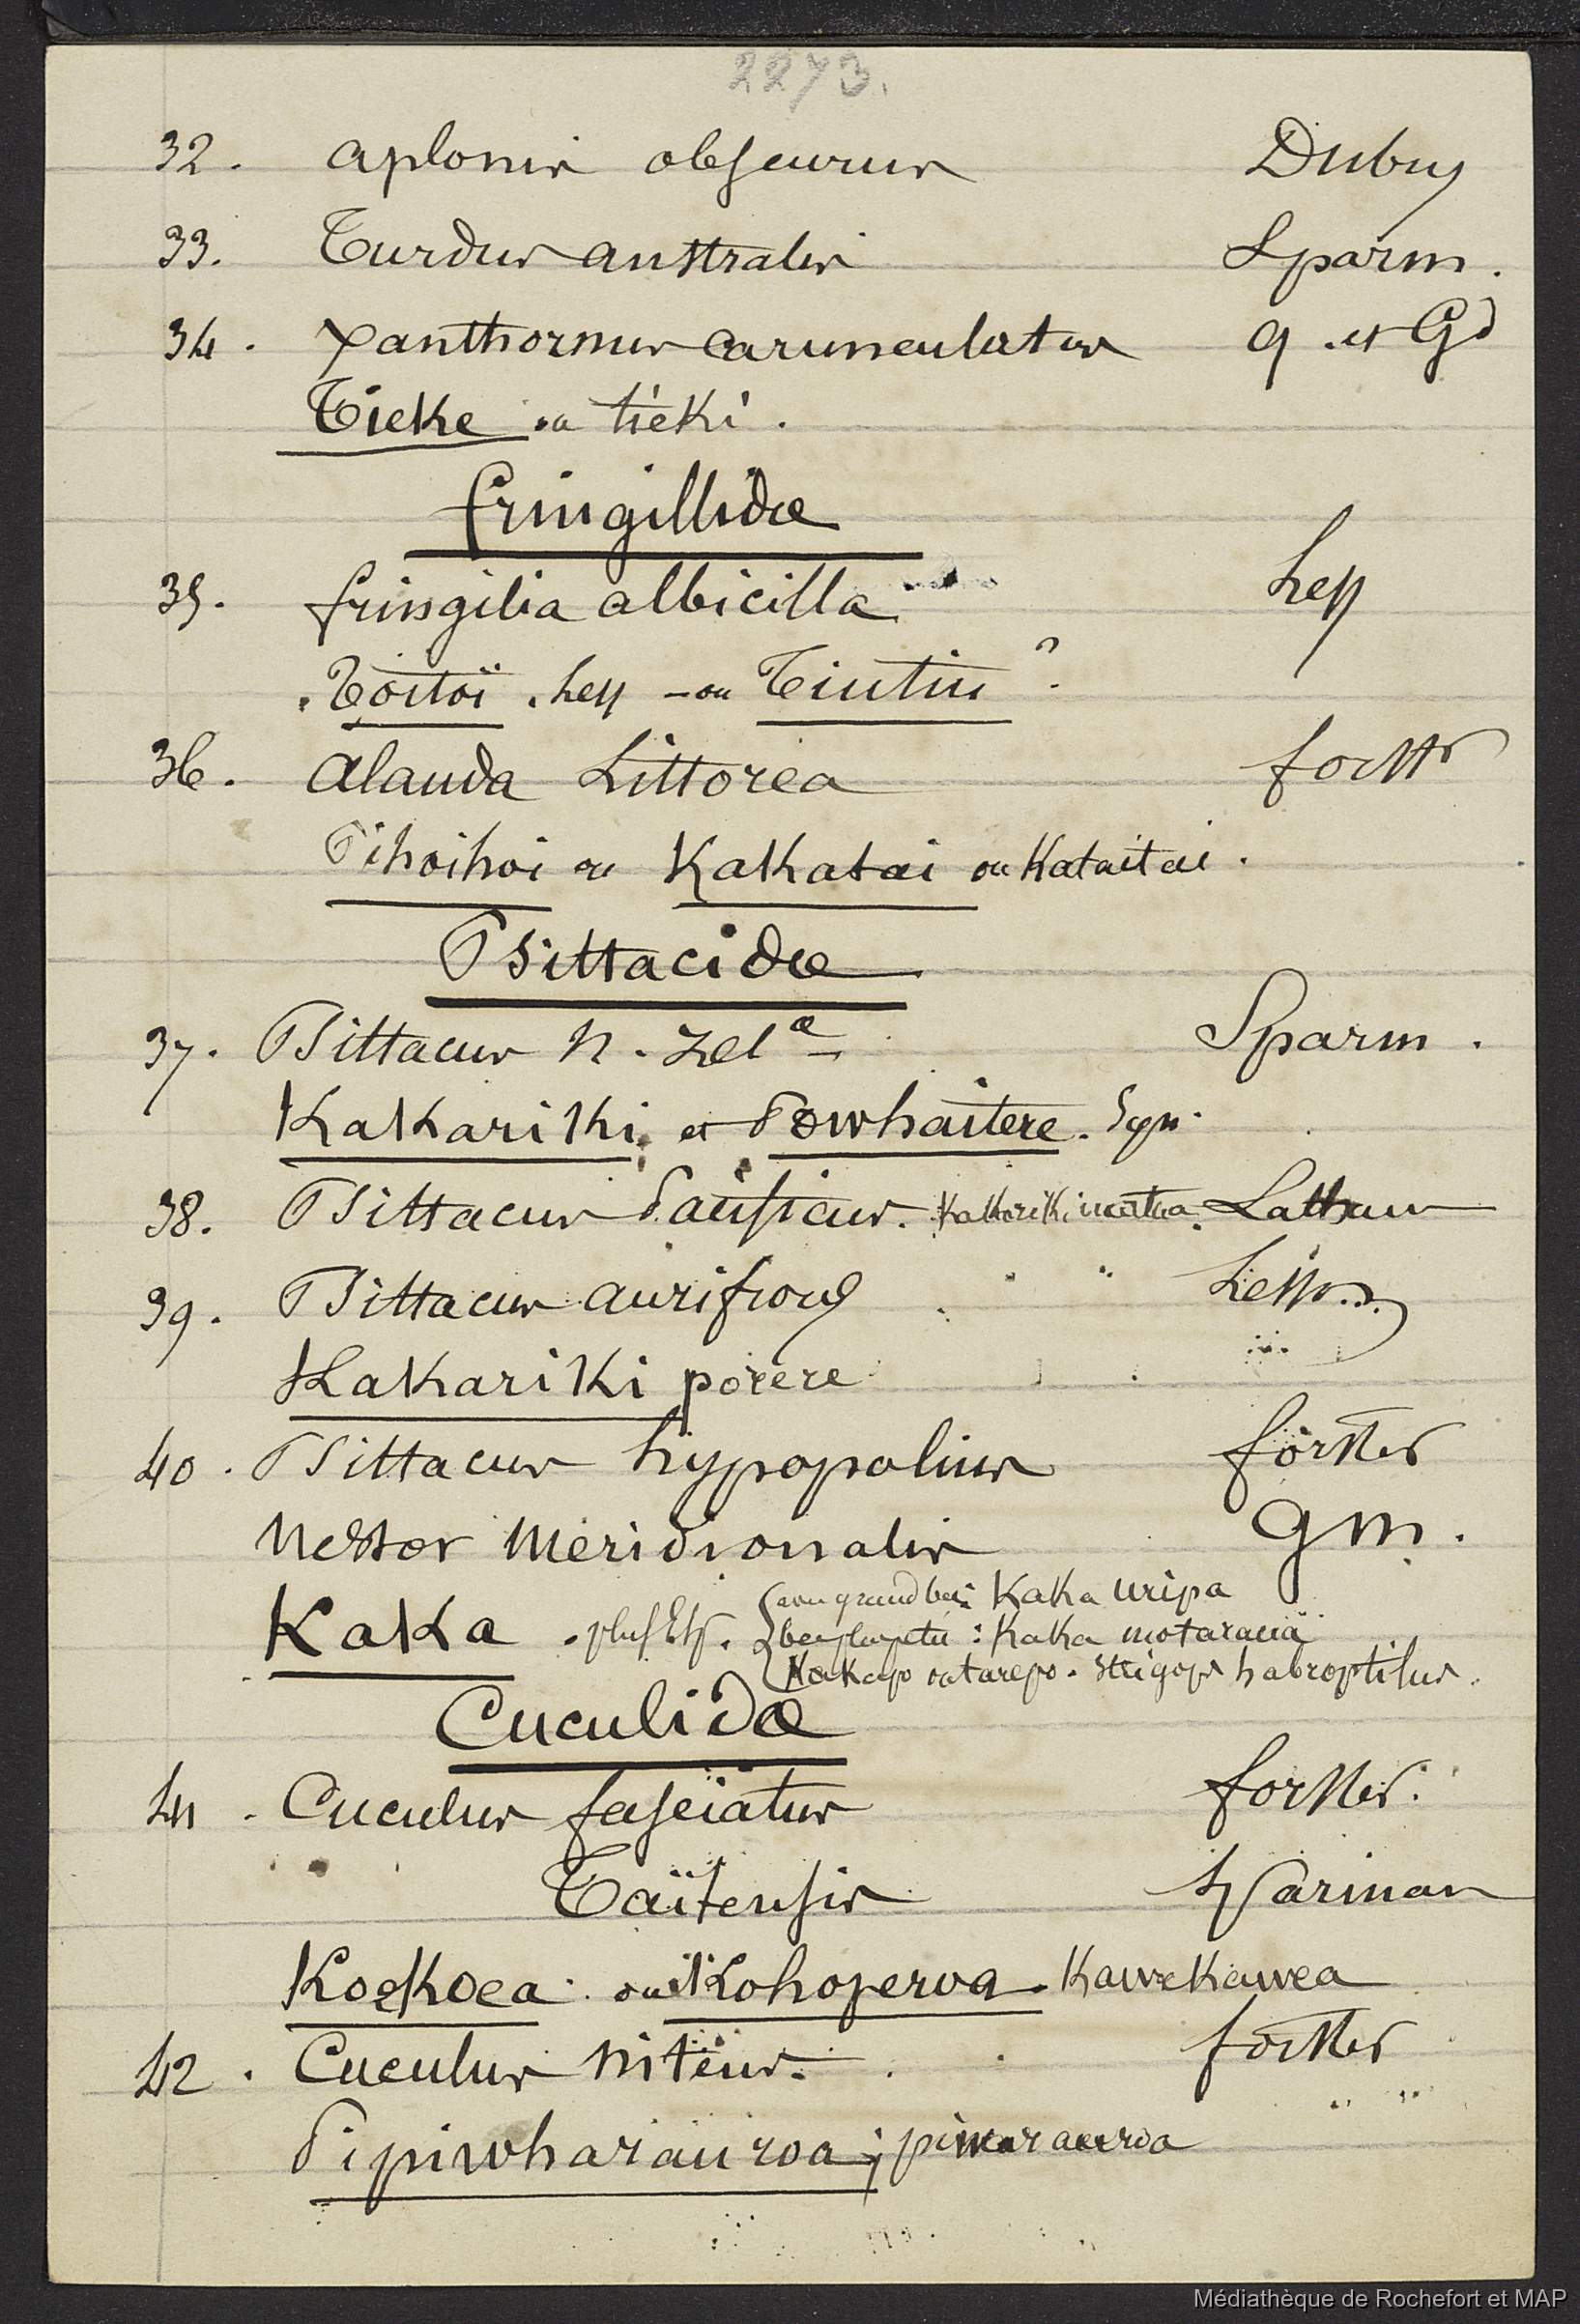 2273.
32. aplonis obscurus Dubus
33. Turdus australis Sparm.
34. Xanthornus carunculatus Q. et Gd
Tieke ou tieki.
fringillidæ
35. fringilia albicilla Less
Toitoï. Less - ou Tiutiu?
36. Alauda Littorea forstr
Pihoihoi ou Kakatai ou Kataitai.
Psittacidæ
37. Psittacus N. Zelæ Sparm.
Kakariki et Powhaitere. Syn.
38. Psittacus Pacificus. Latham
39. Psittacus aurifrons Lesson
Kakariki porere
40. Psittacus hypopolius forster
Nestor Meridionalis Gm.
Kaka. plus. Esp.
avec grand bec: Kaka uripa
bec plus petit: Kaka motaraua
Kakapo ou tarepo. Strigops habroptilus.
Cuculidæ
41. Cuculus fasciatus forster.
Taïtensis Sparman
Koekoea ou Kohoperoa. Kawekawea
42. Cuculus nitens. forster
Pipiwharauroa; piwarauroa
Médiathèque de Rochefort et MAP